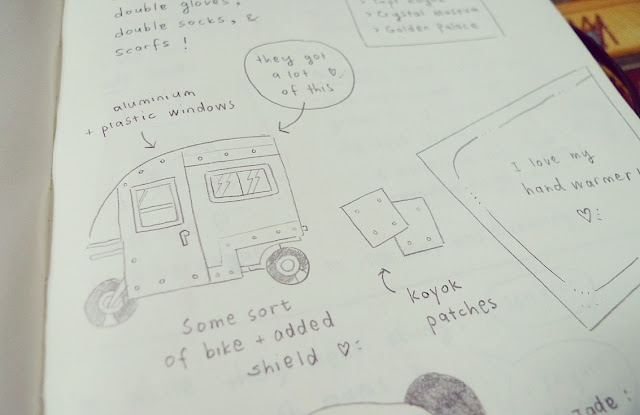 double gloves,
double socks, &
scarfs !
> Crystal Museum
> Golden Palace
they got
a lot ♡
of this
aluminium
+ plastic windows
I love my
hand warmer !
♡:
koyok
patches
Some sort
of bike + added
shield ♡:
Jade :